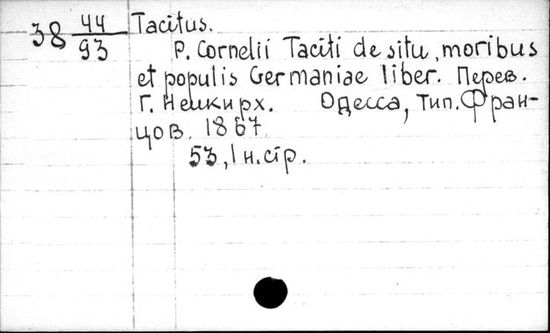 38 44/93
Tacitus.
P. Cornelii Taciti de situ, moribus
et populis Germaniae liber. Перев.
Г. Нейкирх. Одесса, Тип. Фран-
цов. 1867.
53, 1 н. стр.